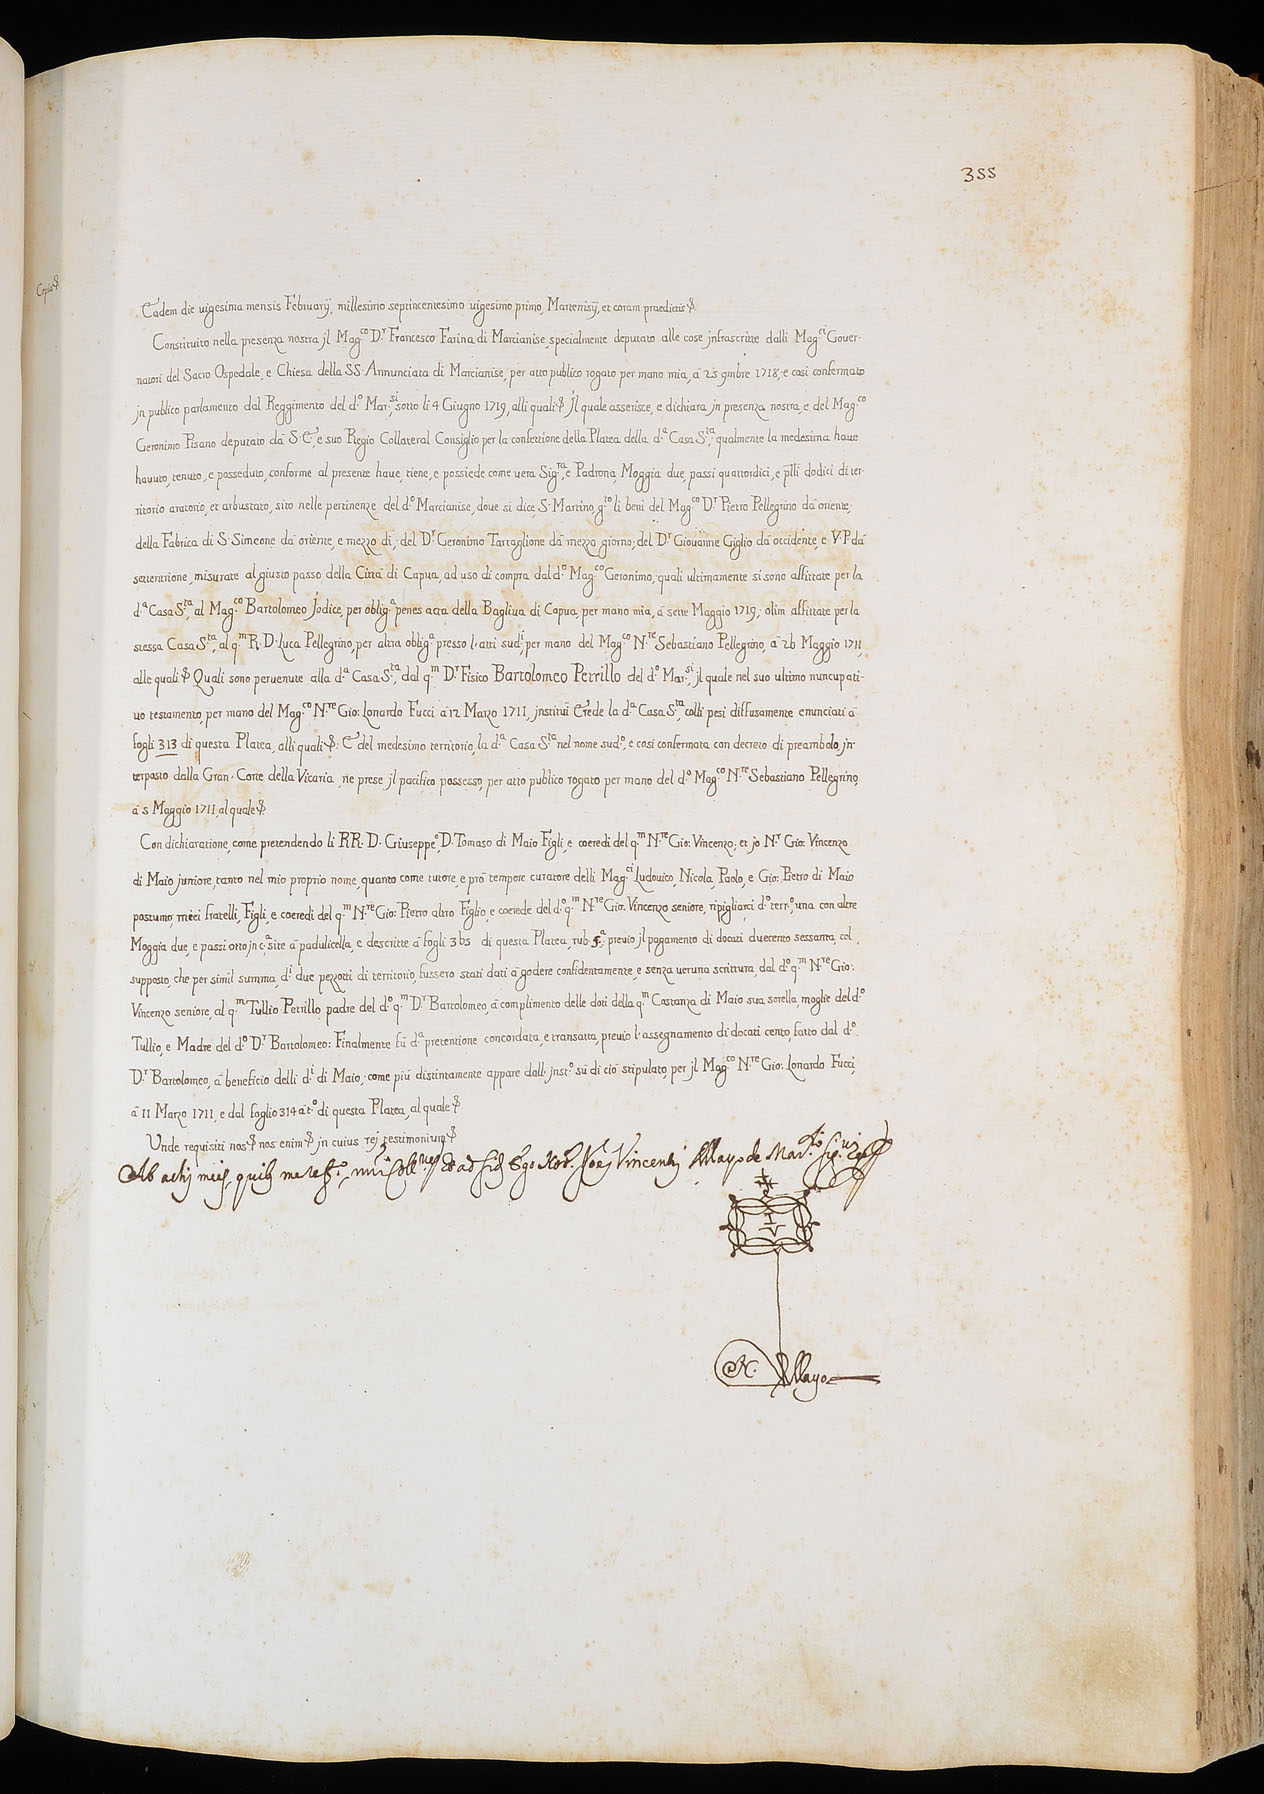 355
Copia
Eadem die uigesima mensis Februarij, millesimo septincentesimo uigesimo primo, Martenisij, et coram praedictis
Constituito nella presenza nostra jl Mag.co D.r Francesco Farina di Marcianise, specialmente deputato alle cose jnfrascritte dalli Mag.ci Gouer-
natori del Sacro Ospedale, e Chiesa della SS. Annunciata di Marcianise, per atto publico rogato per mano mia, à 25 9mbre 1718, e così confermato
jn publico parlamento dal Reggimento del d.o Mar.si sotto li 4 Giugno 1719, alli quali Jl quale asserisce, e dichiara jn presenza nostra, e del Mag.co
Geronimo Pisano deputato dà S.E., e suo Regio Collateral Consiglio per la confettione della Platea della d.a Casa S.ta, qualmente la medesima haue
hauuto, tenuto, e posseduto, conforme al presente haue, tiene, e possiede come uera Sig.ra, e Padrona, Moggia due, passi quattordici, e p̄lli dodici di ter-
ritorio aratorio, et arbustato, sito nelle pertinenze del d.o Marcianise, doue si dice, S. Martino, g.to li beni del Mag.co D.r Pietro Pellegrino dà oriente;
della Fabrica di S. Simeone dà oriente, e mezzo dì; del D.r Geronimo Tartaglione dà mezzo giorno; del D.r Giouanne Giglio dà occidente, e V.P. dà
settentrione, misurate al giusto passo della Città di Capua, ad uso di compra dal d.o Mag.co Geronimo; quali ultimamente si sono affittate per la
d.a Casa S.ta, al Mag.co Bartolomeo Jodice, per oblig.a penes acta della Bagliua di Capua, per mano mia, à sette Maggio 1719; olim affittate per la
stessa Casa S.ta, al q.m R.D. Luca Pellegrino, per altra oblig.a presso l'atti sud.i, per mano del Mag.co N.re Sebastiano Pellegrino, à 26 Maggio 1711,
alle quali Quali sono peruenute alla d.a Casa S.ta, dal q.m D.r Fisico Bartolomeo Petrillo del d.o Mar.si, jl quale nel suo ultimo nuncupati-
uo testamento, per mano del Mag.co N.re Gio: Lonardo Fucci à 12 Marzo 1711, jnstituì Erede la d.a Casa S.ta, colli pesi diffusamente enunciati à
fogli 313 di questa Platea, alli quali: E del medesimo territorio, la d.a Casa S.ta nel nome sud.o, e così confermata con decreto di preambolo, jn-
terposto dalla Gran Corte della Vicaria, ne prese jl pacifico possesso, per atto publico rogato per mano del d.o Mag.co N.re Sebastiano Pellegrino,
à 5 Maggio 1711, al quale
Con dichiaratione, come pretendendo li RR. D. Giuseppe, e D. Tomaso di Maio Figli, e coeredi del q.m N.re Gio: Vincenzo; et jo N.r Gio: Vincenzo
di Maio juniore, tanto nel mio proprio nome, quanto come tutore, e prò tempore curatore delli Mag.ci Ludouico, Nicola, Paolo, e Gio: Pietro di Maio
postumo, miei fratelli, Figli, e coeredi del q.m N.re Gio: Pietro altro Figlio, e coerede del d.o q.m N.re Gio: Vincenzo seniore, ripigliarci d.o terr.o, una con altre
Moggia due, e passi otto jn c.a site à padulicella, e descritte à fogli 365 di questa Platea, rub. preuio jl pagamento di docati duecento sessanta, col
supposto, che per simil summa, d.i due pezzotti di territorio, fussero stati dati à godere confidentamente, e senza ueruna scrittura, dal d.o q.m N.re Gio:
Vincenzo seniore, al q.m Tullio Petrillo padre del d.o q.m D.r Bartolomeo, à complimento delle doti della q.m Costanza di Maio sua sorella, moglie del d.o
Tullio, e Madre del d.o D.r Bartolomeo: Finalmente fù d.a pretentione concordata, e transatta, preuio l'assegnamento di docati cento, fatto dal d.o
D.r Bartolomeo, à beneficio delli d.i di Maio, come più distintamente appare dall'jnst.o sù di ciò stipulato, per jl Mag.co N.re Gio: Lonardo Fucci,
à 11 Marzo 1711, e dal foglio 314 à t.o di questa Platea, al quale
Unde requisiti nos nos enim jn cuius rej testimonium
Ab actis meis, quib me Ego Not. Vincentius Mayo de
I V
N. Mayo